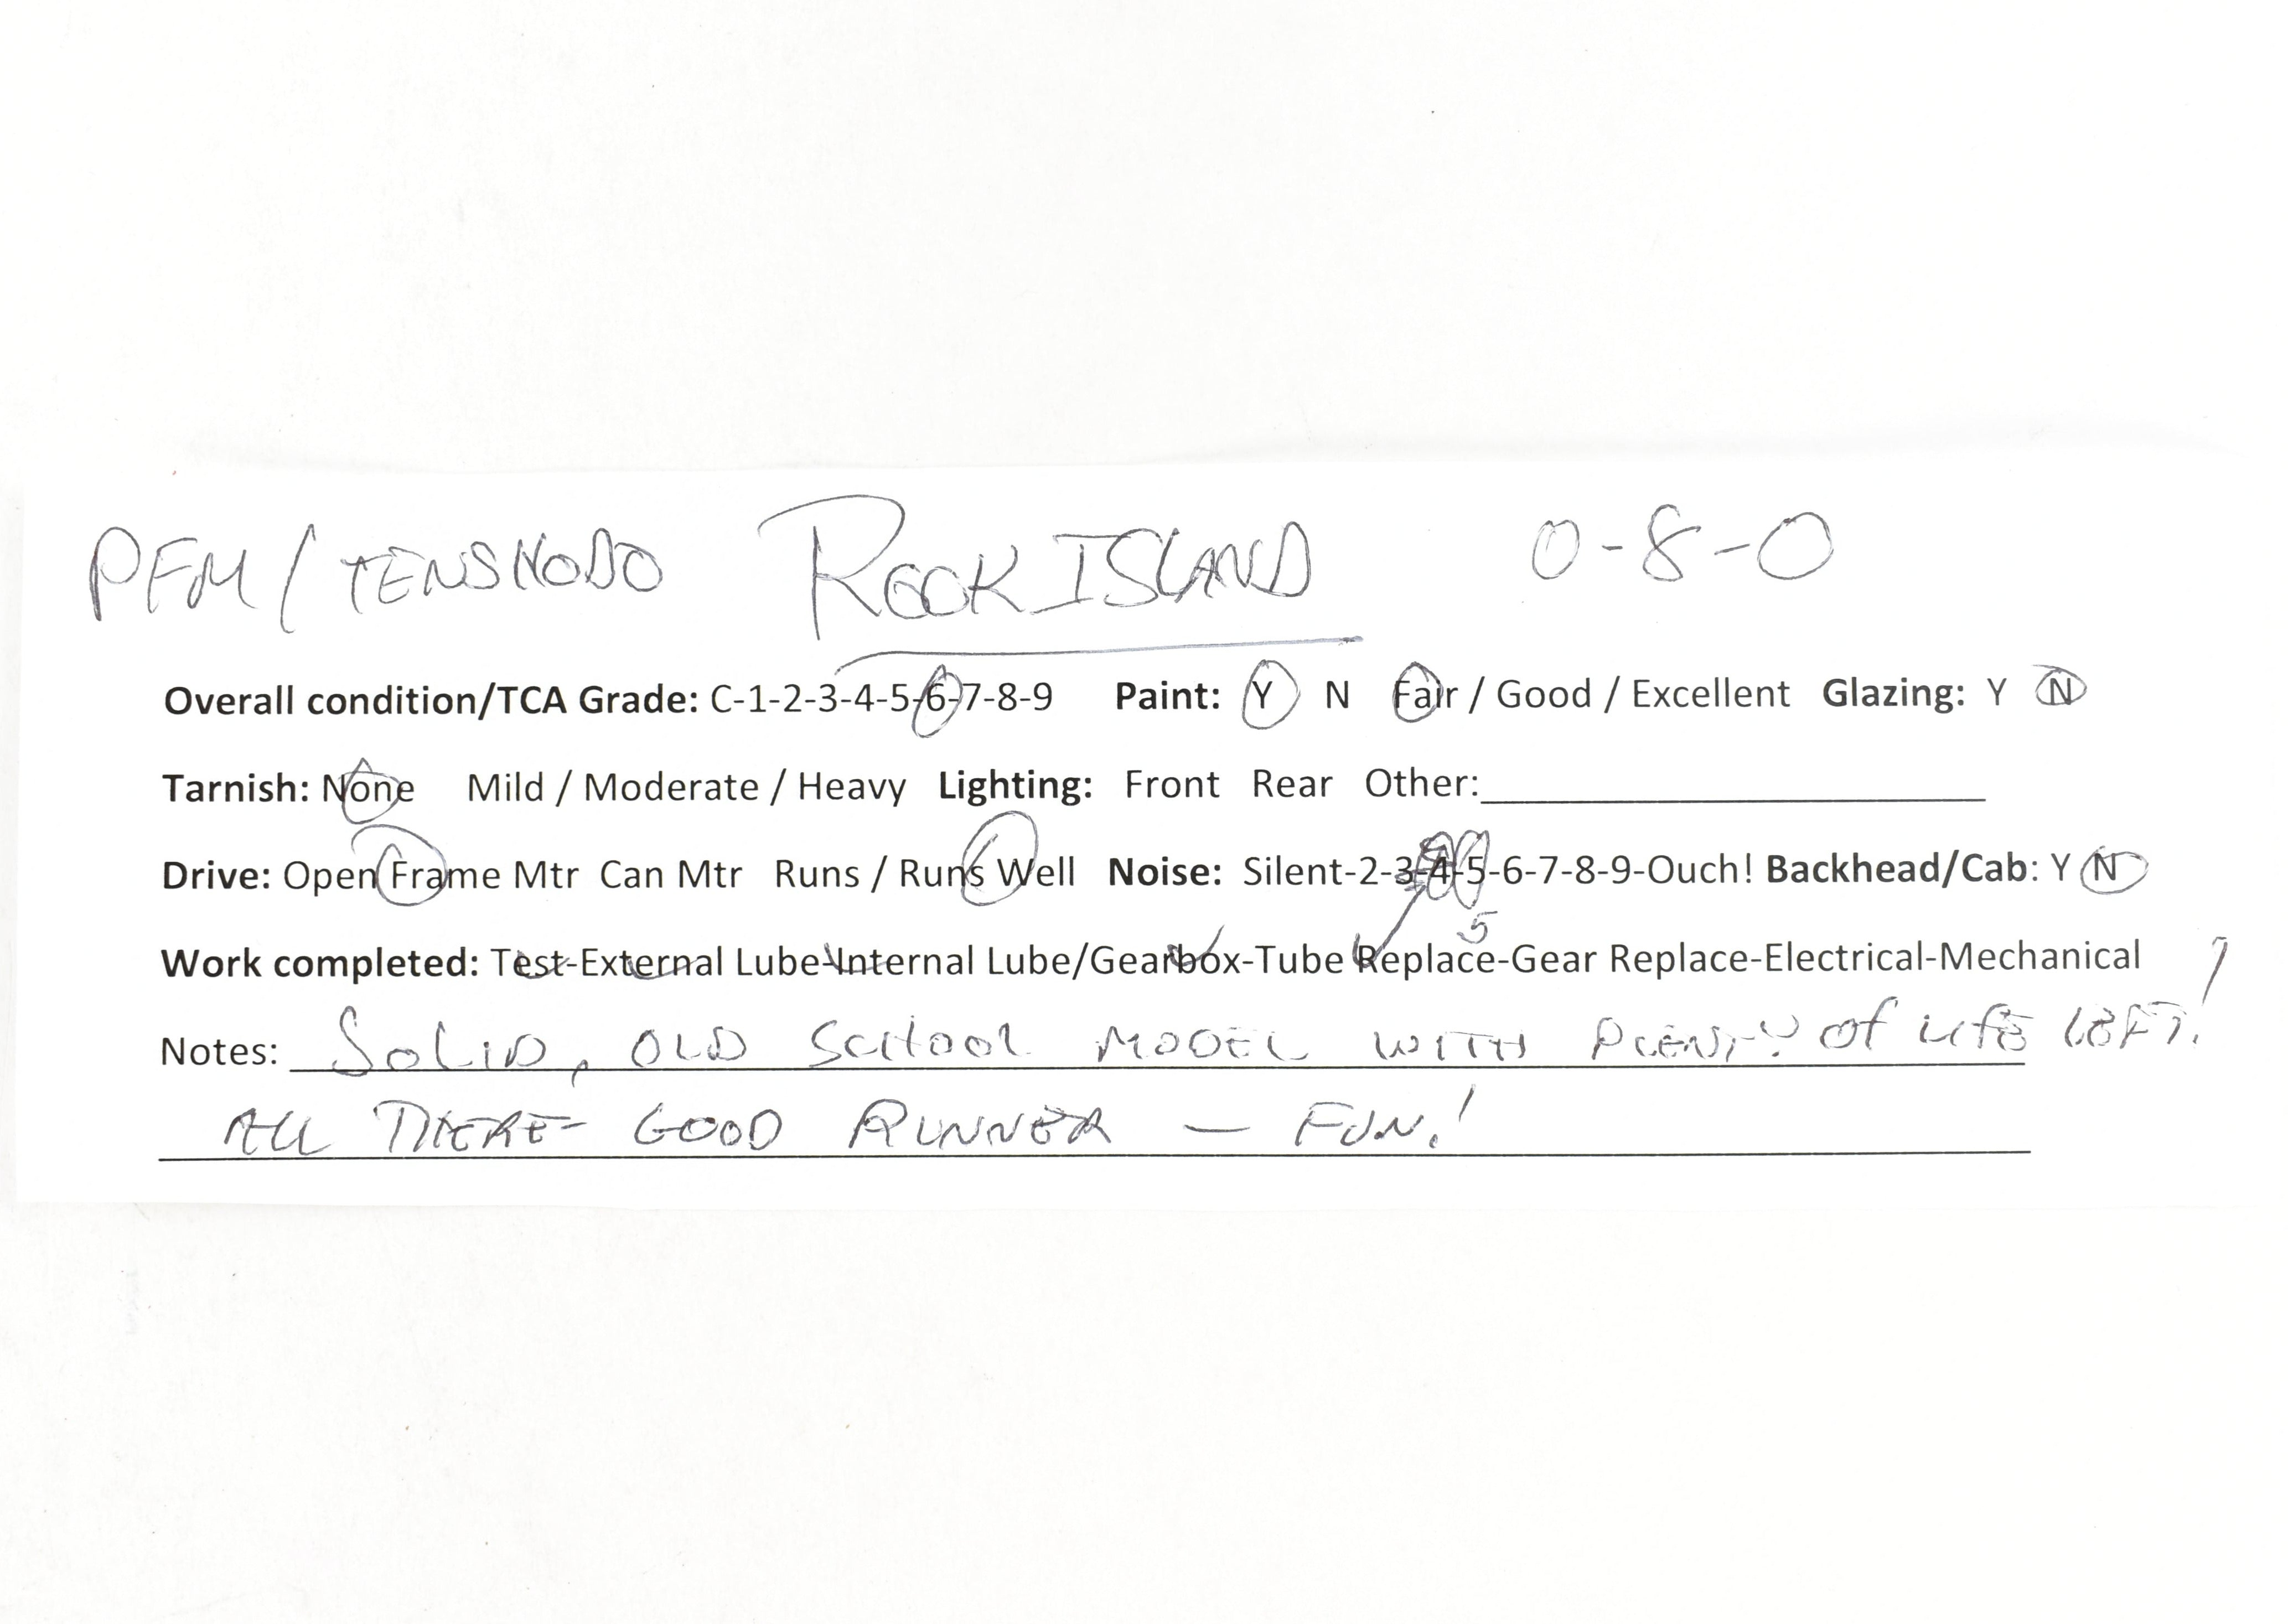 PFM/TENSHODO ROCK ISLAND 0-8-0
Overall condition/TCA Grade: C-1-2-3-4-5-6-7-8-9 Paint: Y N Fair / Good / Excellent Glazing: Y N
Tarnish: None Mild / Moderate / Heavy Lighting: Front Rear Other:
Drive: Open Frame Mtr Can Mtr Runs / Runs Well Noise: Silent-2-3-4-5-6-7-8-9-Ouch! Backhead/Cab: Y N
5
Work completed: Test-External Lube-Internal Lube/Gearbox-Tube Replace-Gear Replace-Electrical-Mechanical
Notes: SOLID, OLD SCHOOL MODEL WITH PLENTY OF LIFE LEFT!
ALL THERE- GOOD RUNNER - FUN!